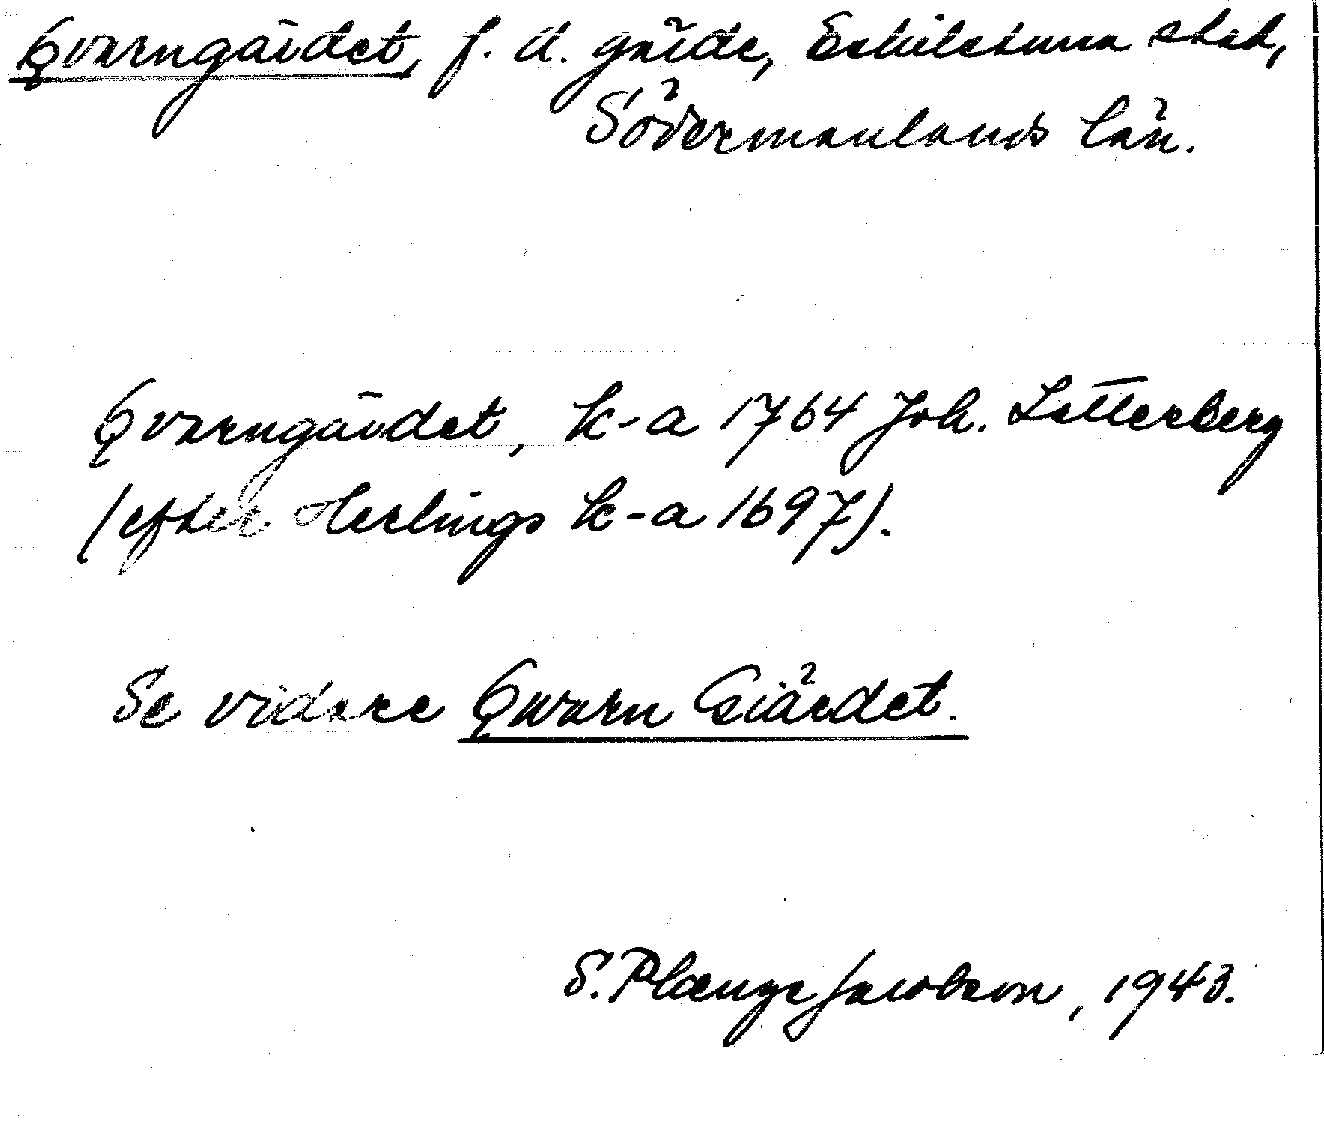 Qvarngärdet, f. d. gärde, Eskilstuna stad,
Södermanlands län.
Qvarngärdet, k-a 1764 Joh. Zetterberg
(efter Herlings k-a 1697).
Se vidare Qwarn Giärdet.
S. Plænge Jacobson, 1943.